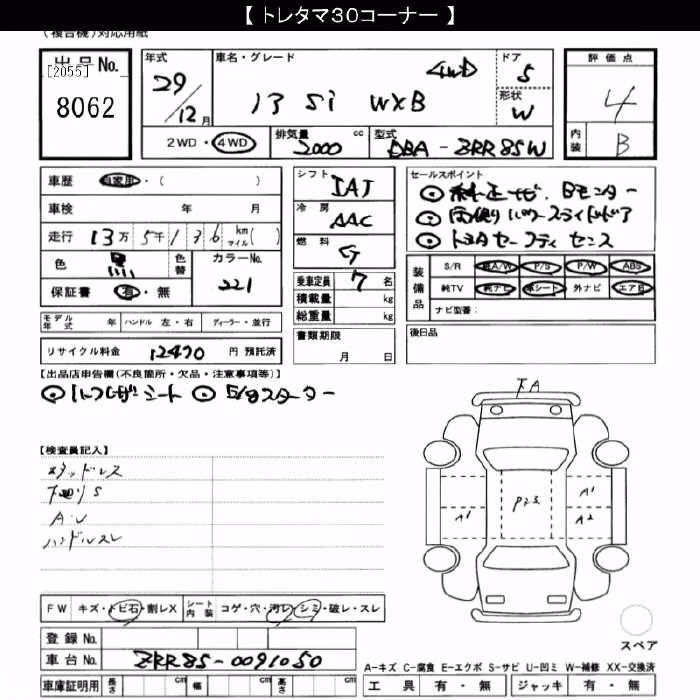 【 トレタマ30コーナー 】
(複合機)対応用紙
出品No.
[2055]
8062
年式 29/12月
車名・グレード
ドア 5
4WD
13 Si WXB
形状 W
評価点 4
内装 B
2WD・4WD
排気量 2000 cc
型式 DBA - ZRR85W
車歴 自家用・( )
車検 年 月
走行 13万5千136 km マイル( )
色 黒 色替
カラーNo. 221
保証書 有・無
モデル年式 年 ハンドル 左・右 ディーラー・並行
リサイクル料金 12470 円 預託済
シフト IAT
冷房 AAC
燃料 G
乗車定員 7 名
積載量 kg
総重量 kg
書類期限
月 日
セールスポイント
◎ 純正ナビ. Bモニター
◎ 両側パワースライドドア
◎ トヨタセーフティセンス
装備品
S/R A/W P/S P/W ABS
純TV 純ナビ 革シート 外ナビ エアB
ナビ型番:
後日品
【出品店申告欄(不良箇所・欠品・注意事項等)】
◎ ハーフレザーシート ◎
【検査員記入】
スタッドレス
下廻りS
A.U
ハンドルスレ
FA
P23
A1 A1
A2
FW キズ・トビ石・割レX
シート内装 コゲ・穴・汚レ・シミ・破レ・スレ
登録No.
車台No. ZRR85-0091050
車庫証明用 長さ cm 幅 cm 高さ cm
スペア
A-キズ C-腐食 E-エクボ S-サビ U-凹ミ W-補修 XX-交換済
工具 有・無 ジャッキ 有・無